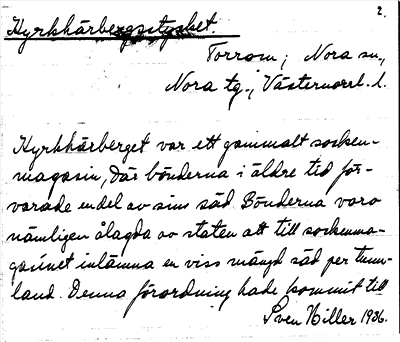 2.
Kyrkhärbergsstycket.
Torrom; Nora sn.,
Nora tg., Västernorrl. l.
Kyrkhärberget var ett gammalt socken-
magasin, där bönderna i äldre tid för-
varade en del av sin säd Bönderna voro
nämligen ålagda av staten att till sockenma-
gasinet inlämna en viss mängd säd per tunn-
land. Denna förordning hade kommit till
Sven Hiller 1936.